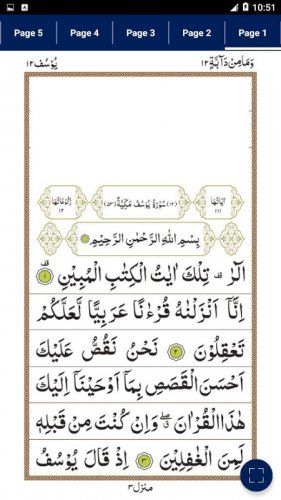 10:51
Page 5 Page 4 Page 3 Page 2 Page 1
وَمَا مِنْ دَآبَّةٍ ١٢ يُوْسُف ١٢
اٰيَاتُهَا ١١١ (١٢) سُوْرَةُ يُوْسُفَ مَكِّيَّةٌ (٥٣) رُكُوْعَاتُهَا ١٢
بِسْمِ اللّٰهِ الرَّحْمٰنِ الرَّحِيْمِ
الٓرٰ ۫ تِلْكَ اٰيٰتُ الْكِتٰبِ الْمُبِيْنِ ١
اِنَّاۤ اَنْزَلْنٰهُ قُرْءٰنًا عَرَبِيًّا لَّعَلَّكُمْ
تَعْقِلُوْنَ ٢ نَحْنُ نَقُصُّ عَلَيْكَ
اَحْسَنَ الْقَصَصِ بِمَاۤ اَوْحَيْنَاۤ اِلَيْكَ
هٰذَا الْقُرْاٰنَ ۖ وَاِنْ كُنْتَ مِنْ قَبْلِهٖ
لَمِنَ الْغٰفِلِيْنَ ٣ اِذْ قَالَ يُوْسُفُ
منزل ٣